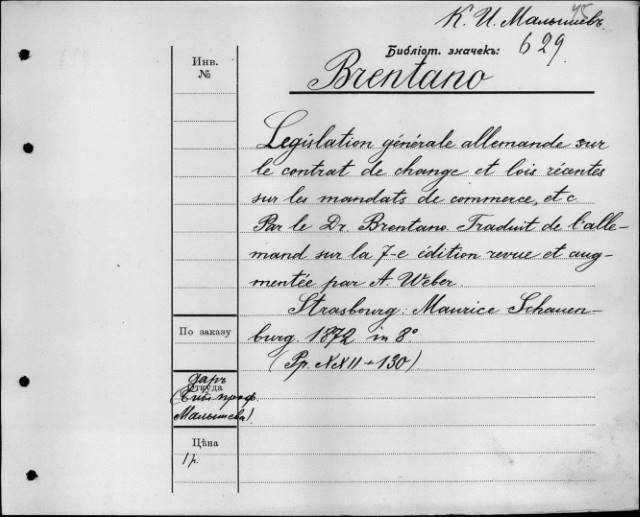 К. И. Малышевъ.
Библіот. значекъ:
629
Инв.
№
Brentano
Législation générale allemande sur
le contrat de change et lois récentes
sur les mandats de commerce, etc
Par le Dr. Brentano. Traduit de l'alle-
mand sur la 7-e édition revue et aug-
mentée par A. Weber.
Strasbourg: Maurice Schauen-
burg. 1872 in 8°
(Pp. XXII + 130)
По заказу
даръ
Откуда
(Библ. проф.
Малышева).
Цѣна
1 р.